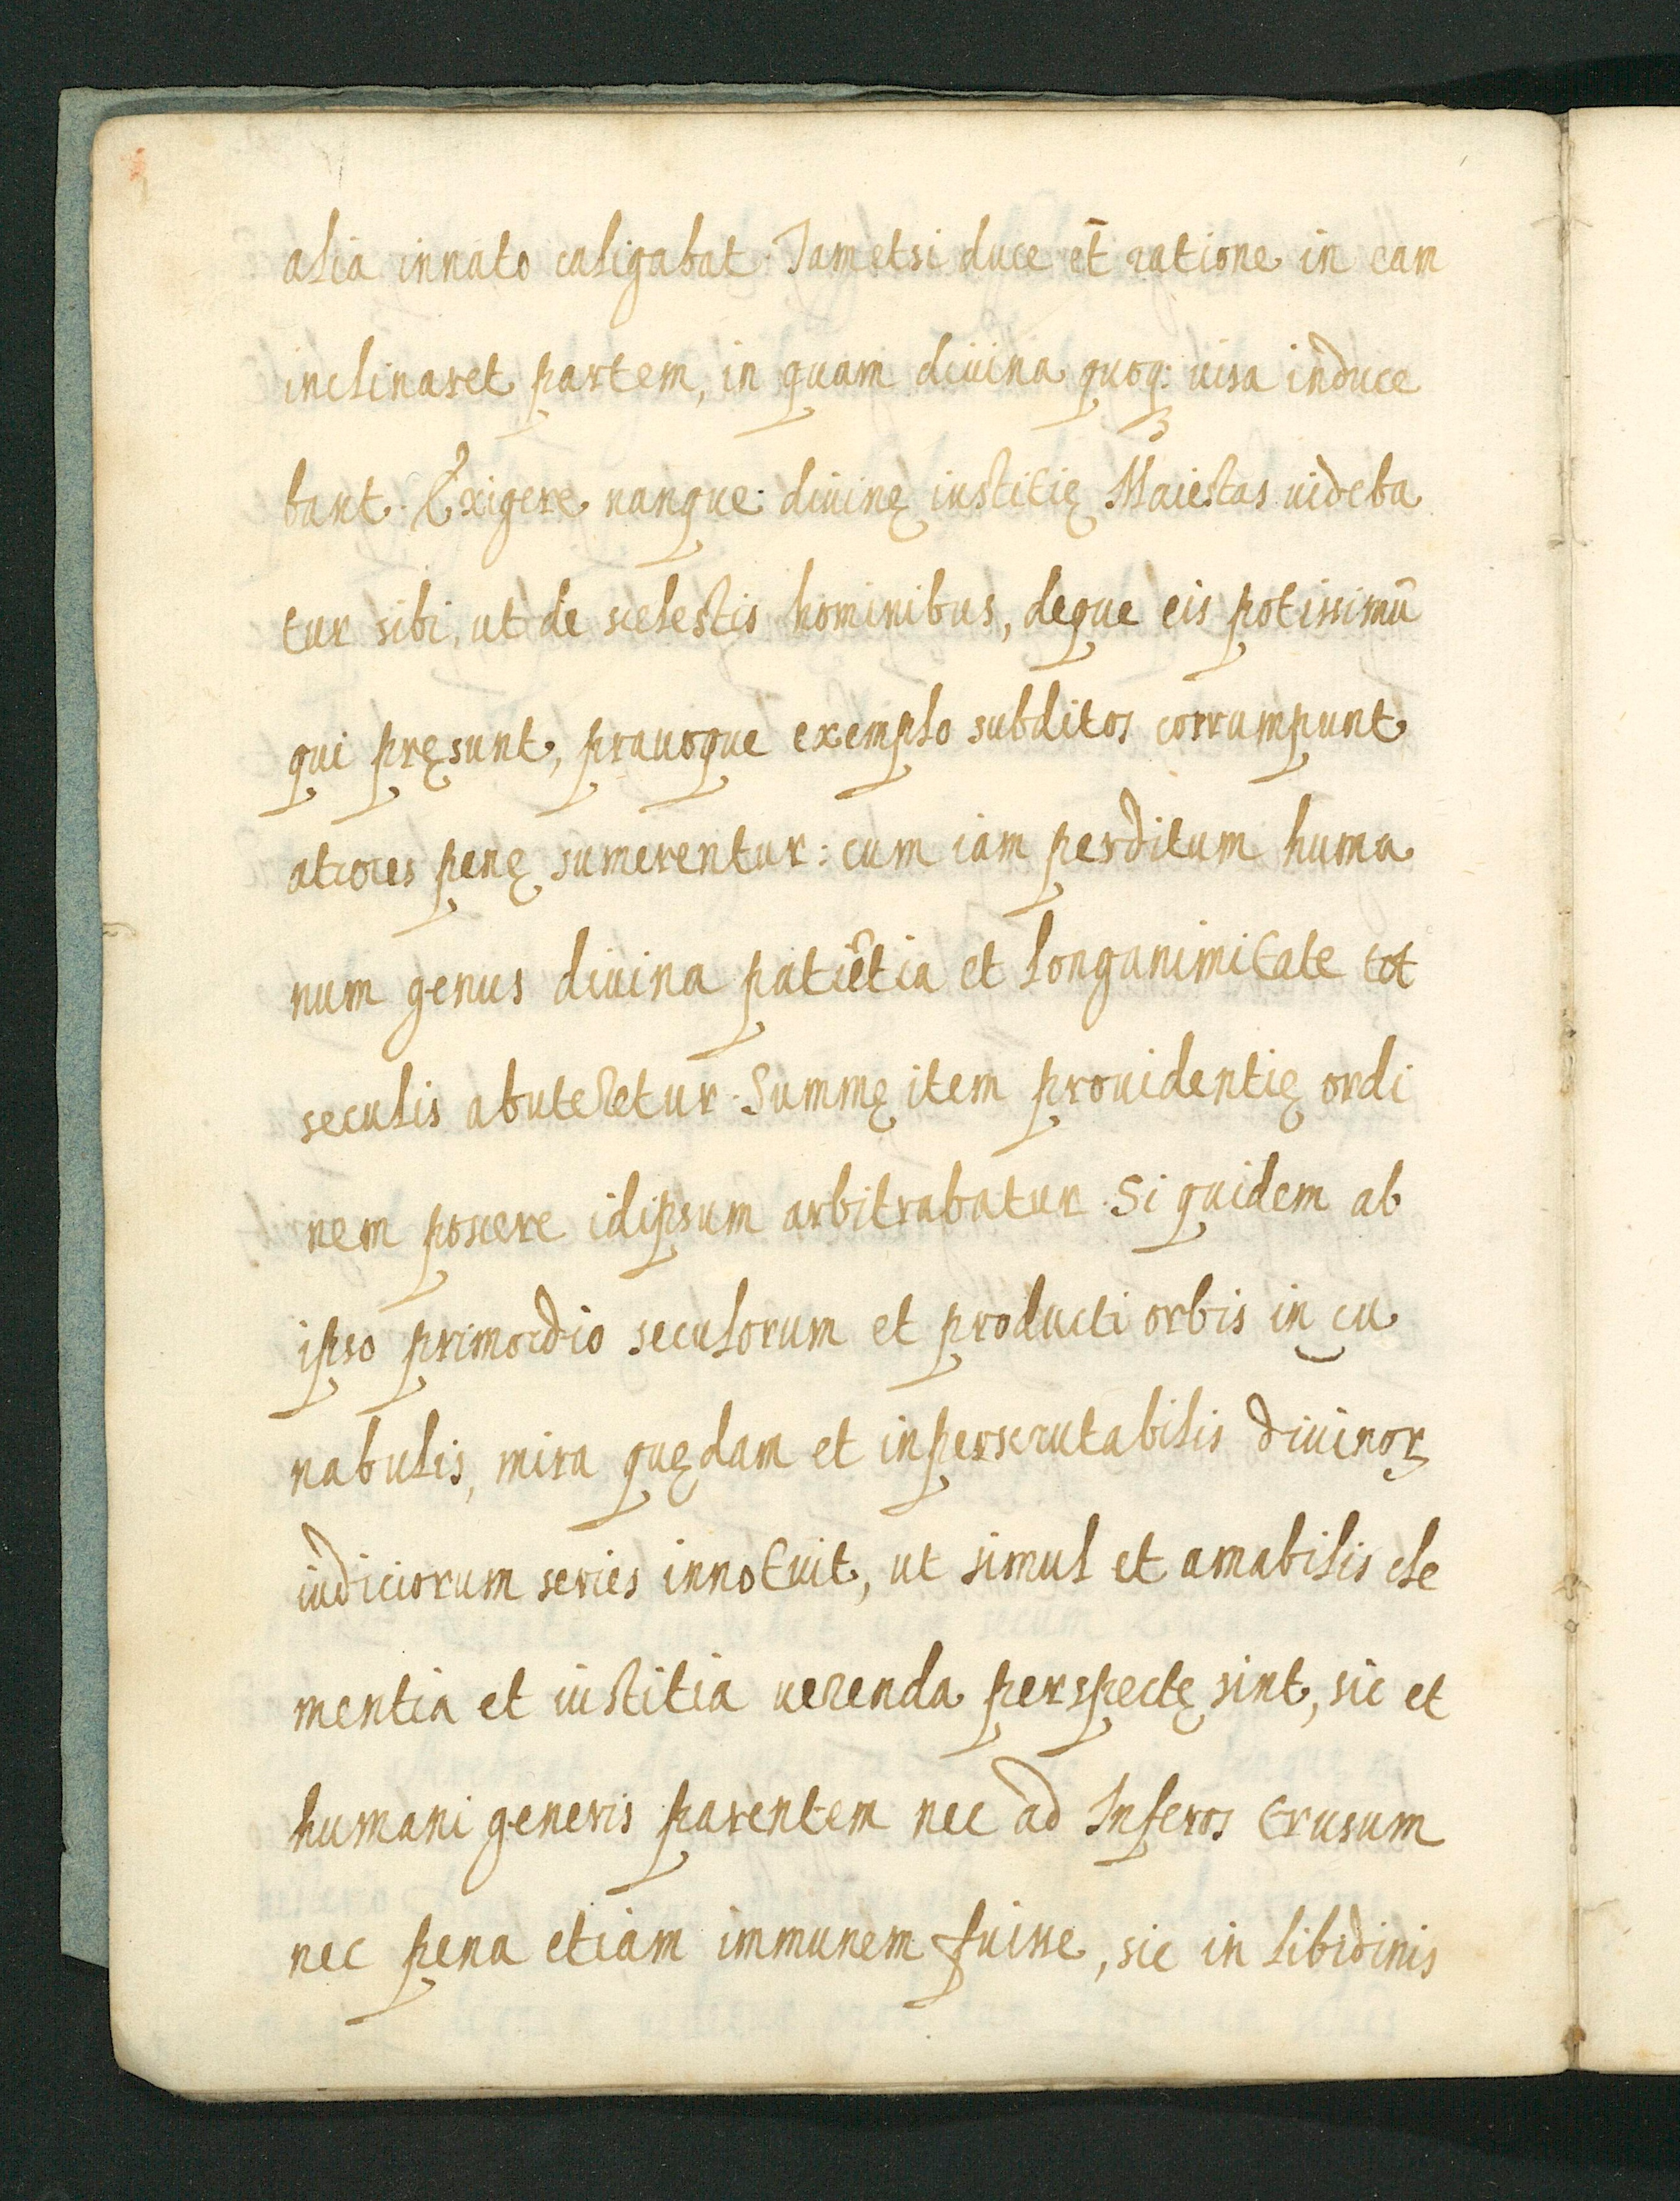 alia innato caligabat. Tametsi duce et̄ ratione in eam
inclinaret partem, in quam diuina quoq: uisa induce
bant. Exigere nanque diuinę iustitię Maiestas uideba
tur sibi, ut de scelestis hominibus, deque eis potissimū
qui pręsunt, prauoque exemplo subditos corrumpunt
atroces penę sumerentur: cum iam perditum huma
num genus diuina patiẽtia et longanimitate tot
seculis abuteretur. Summę item prouidentię ordi
nem poscere idipsum arbitrabatur. Si quidem ab
ipso primordio seculorum et producti orbis in cu
nabulis, mira quędam et inperscrutabilis diuinoꝝ
iudiciorum series innotuit, ut simul et amabilis cle
mentia et iustitia uerenda perspectę sint, sic et
humani generis parentem nec ad Inferos trusum
nec pena etiam immunem fuisse, sic in libidinis